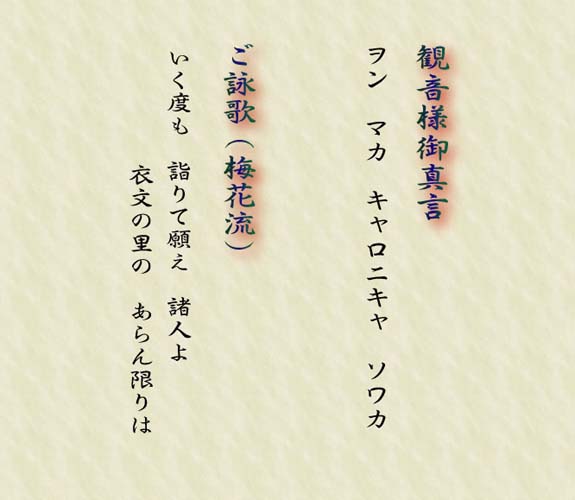 観音様御真言
ヲン　マカ　キャロニキャ　ソワカ
ご詠歌（梅花流）
いく度も　詣りて願え　諸人よ
衣文の里の　あらん限りは